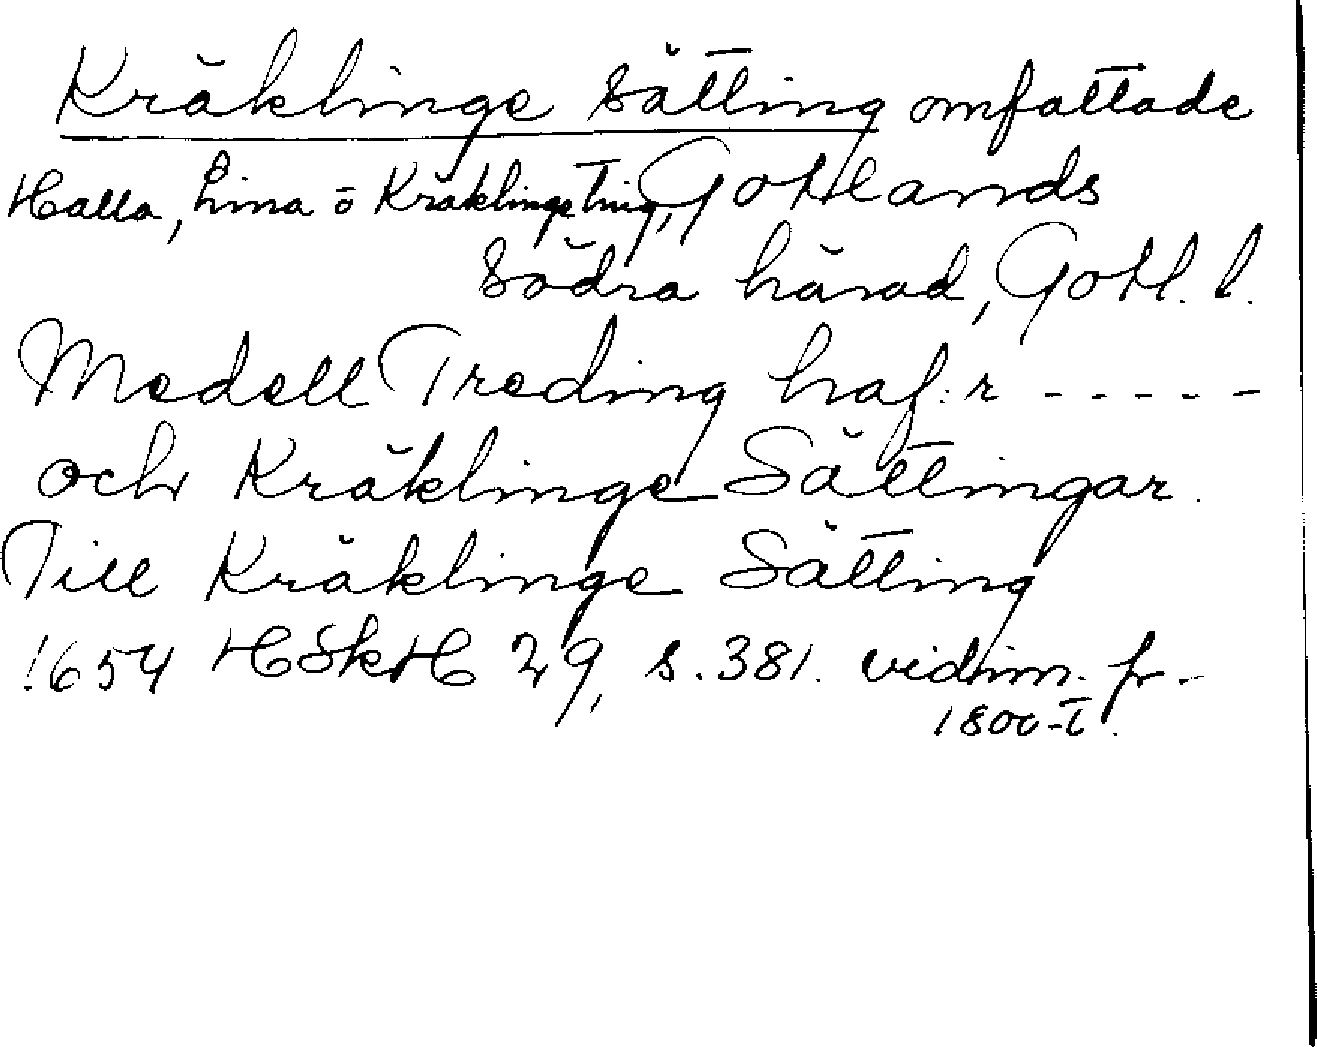 Kräklinge sätting omfattade
Halla, Lina o Kräklinge ting, Gotlands
södra härad, Gotl. l.
Medell Treding haf:r -----
och Kräklinge Sättingar.
Till Kräklinge Sätting
1654 HSkH 29, s. 381. vidim. fr.
1800-t.